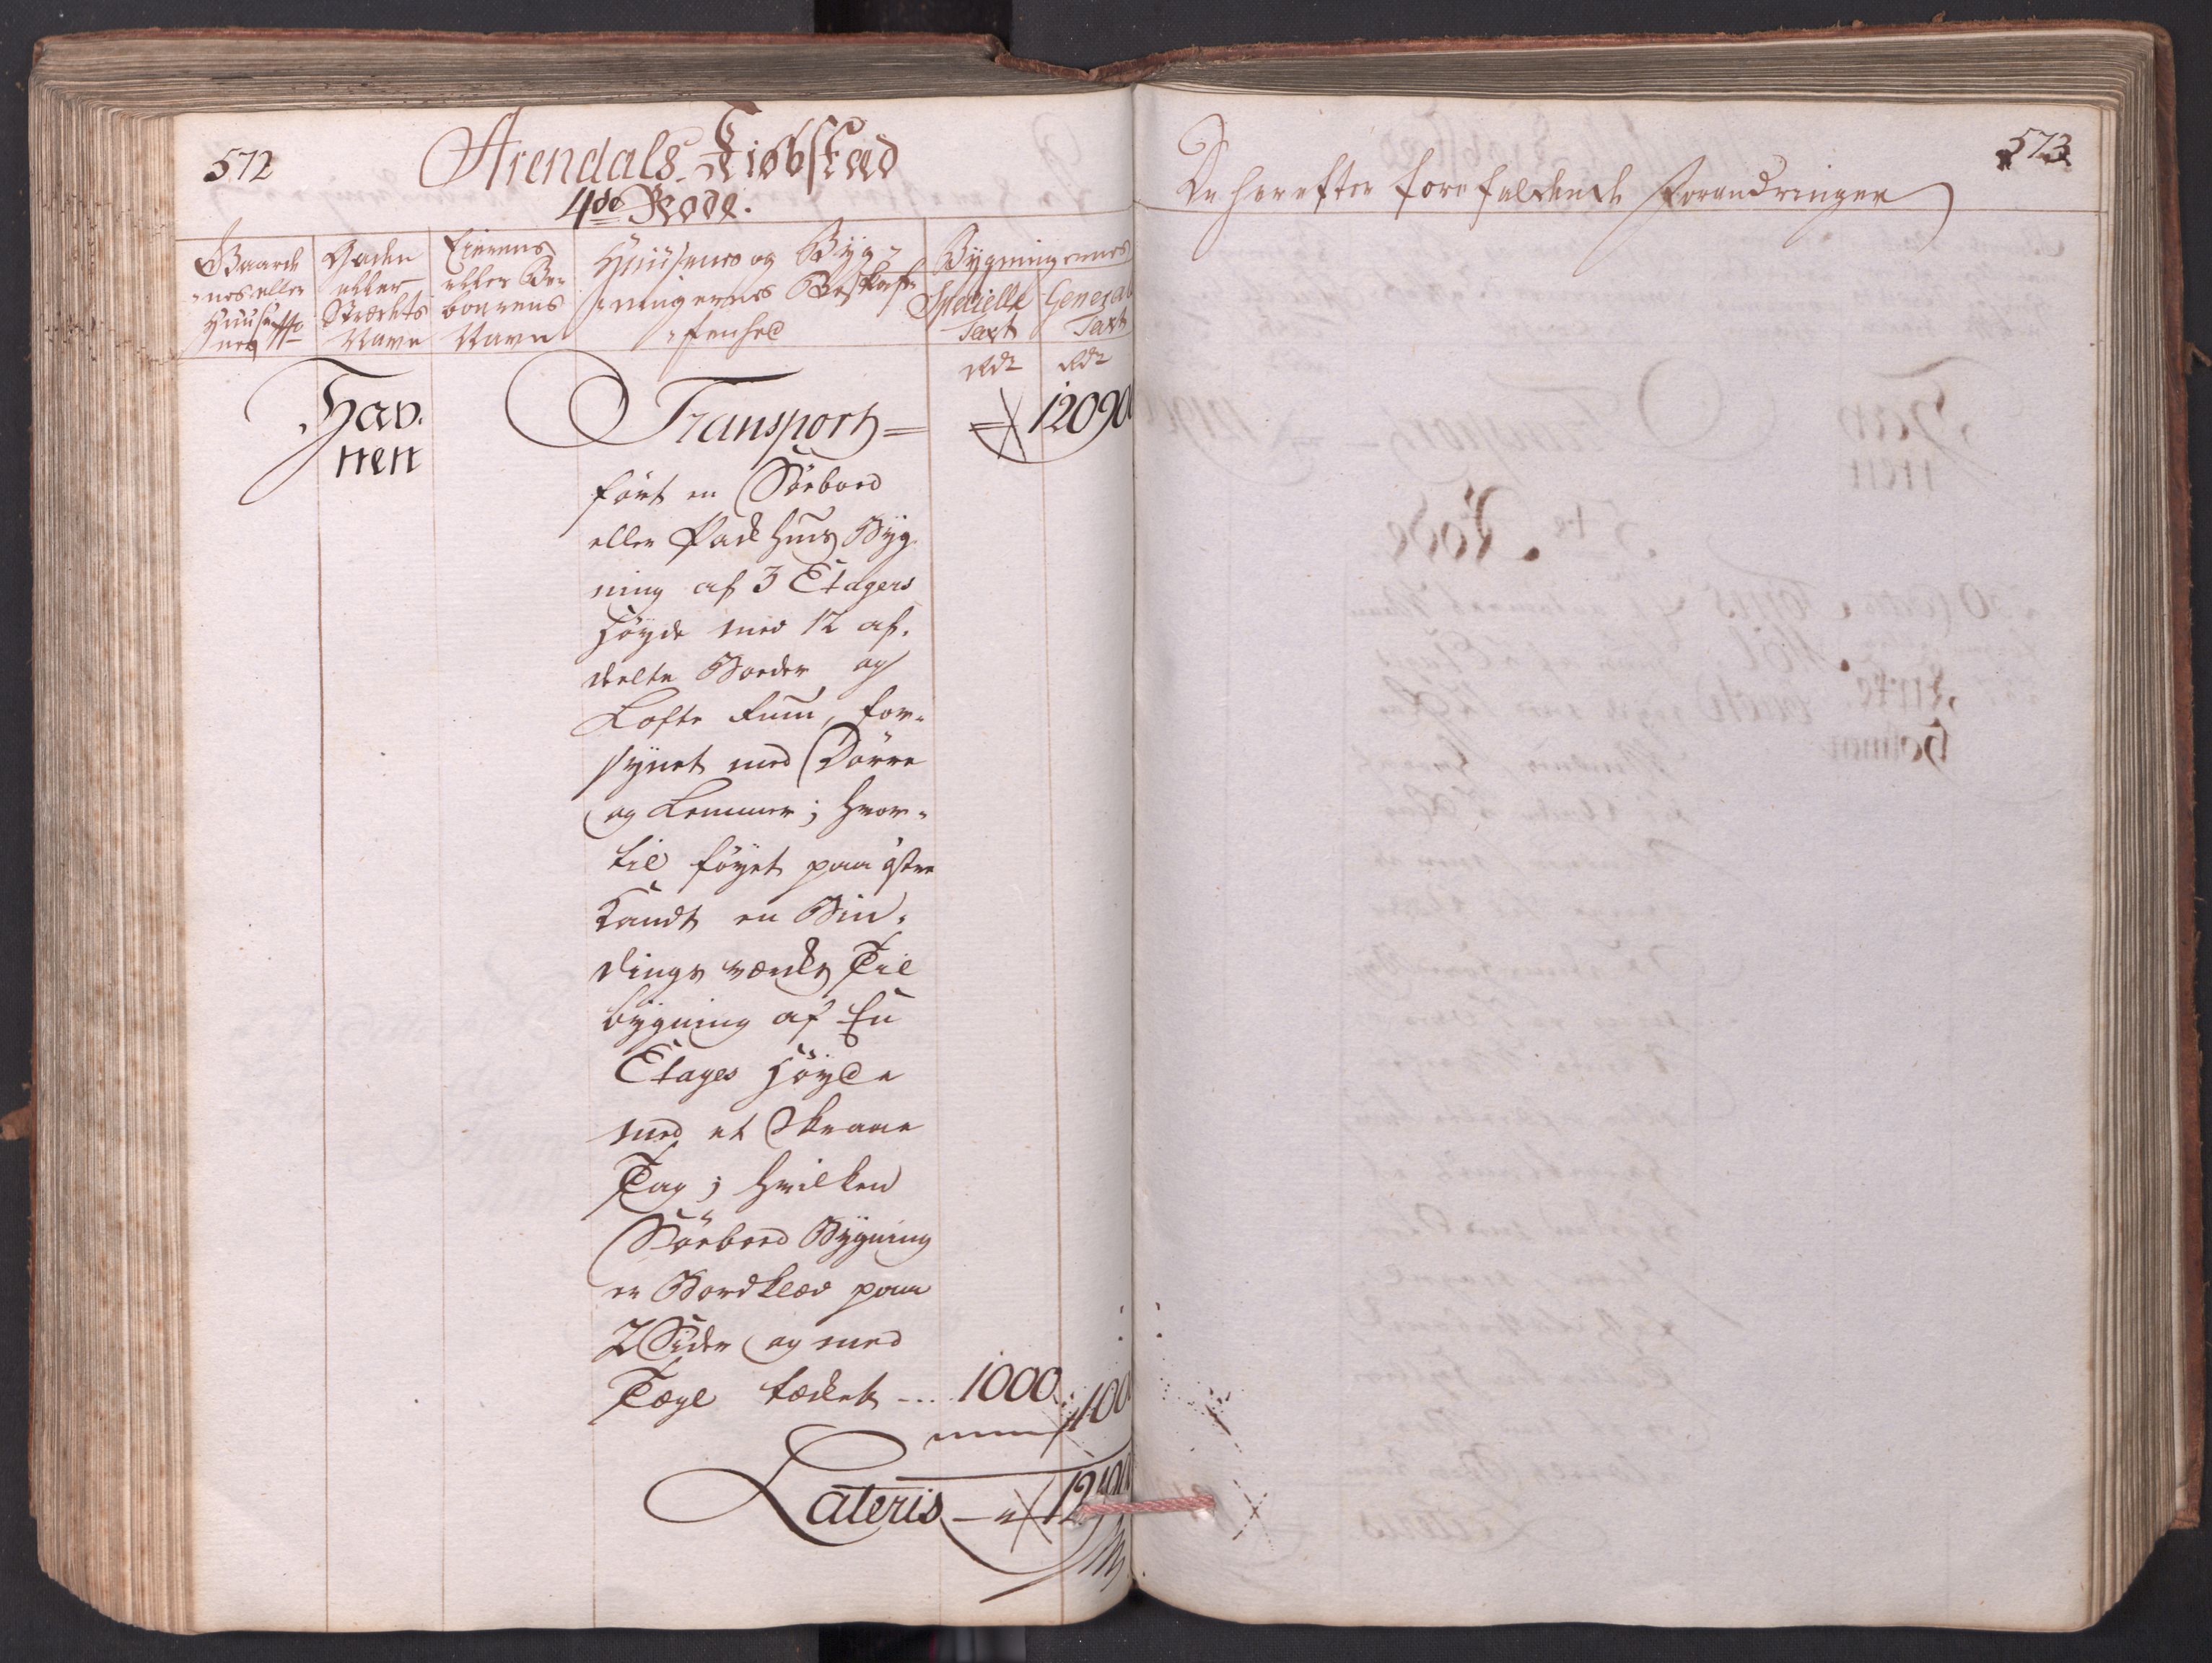 572
Arendals Kiöbstæd
4de Rode.
Gaarde
nes eller
Huuse
nes No
Gaden
eller
Strædets
Navn
Eierens
eller Be-
boerens
Navn
Huusenes og Byg-
ningernes Beskaf-
fenhed
Bygningernes
Specielle
Taxt
Rdr
General
Taxt
Rdr
Hav.
nen
Transport = 12090
fört en Söebod
eller Pack huus Byg
ning af 3 Etagers
Höyde med 12 af.
deelte Boeder og
Lofte Rum, for-
synet med Dörre
og Lemmer; hvor-
til föyet paa östre
Kandt en Bin-
dings værcks Til
bygning af En
Etages Höyde
med et Skraae
Tag; hvilken
Söebod Bygning
er Bordklæd paa
2 Sider og med
Tægl tæcket --- 1000.
100
Lateris
573
De herefter forefaldende Forandringer